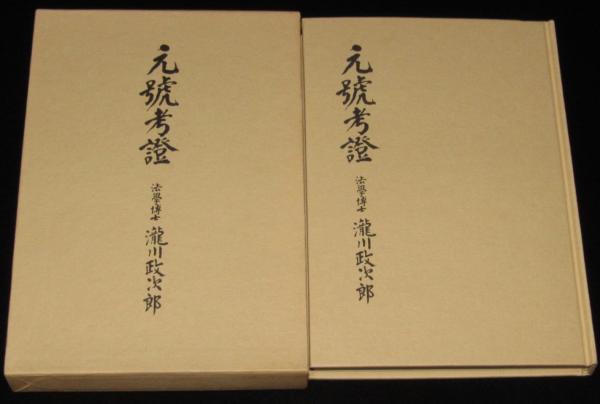 元號考證
法學博士 瀧川政次郎
元號考證
法學博士 瀧川政次郎